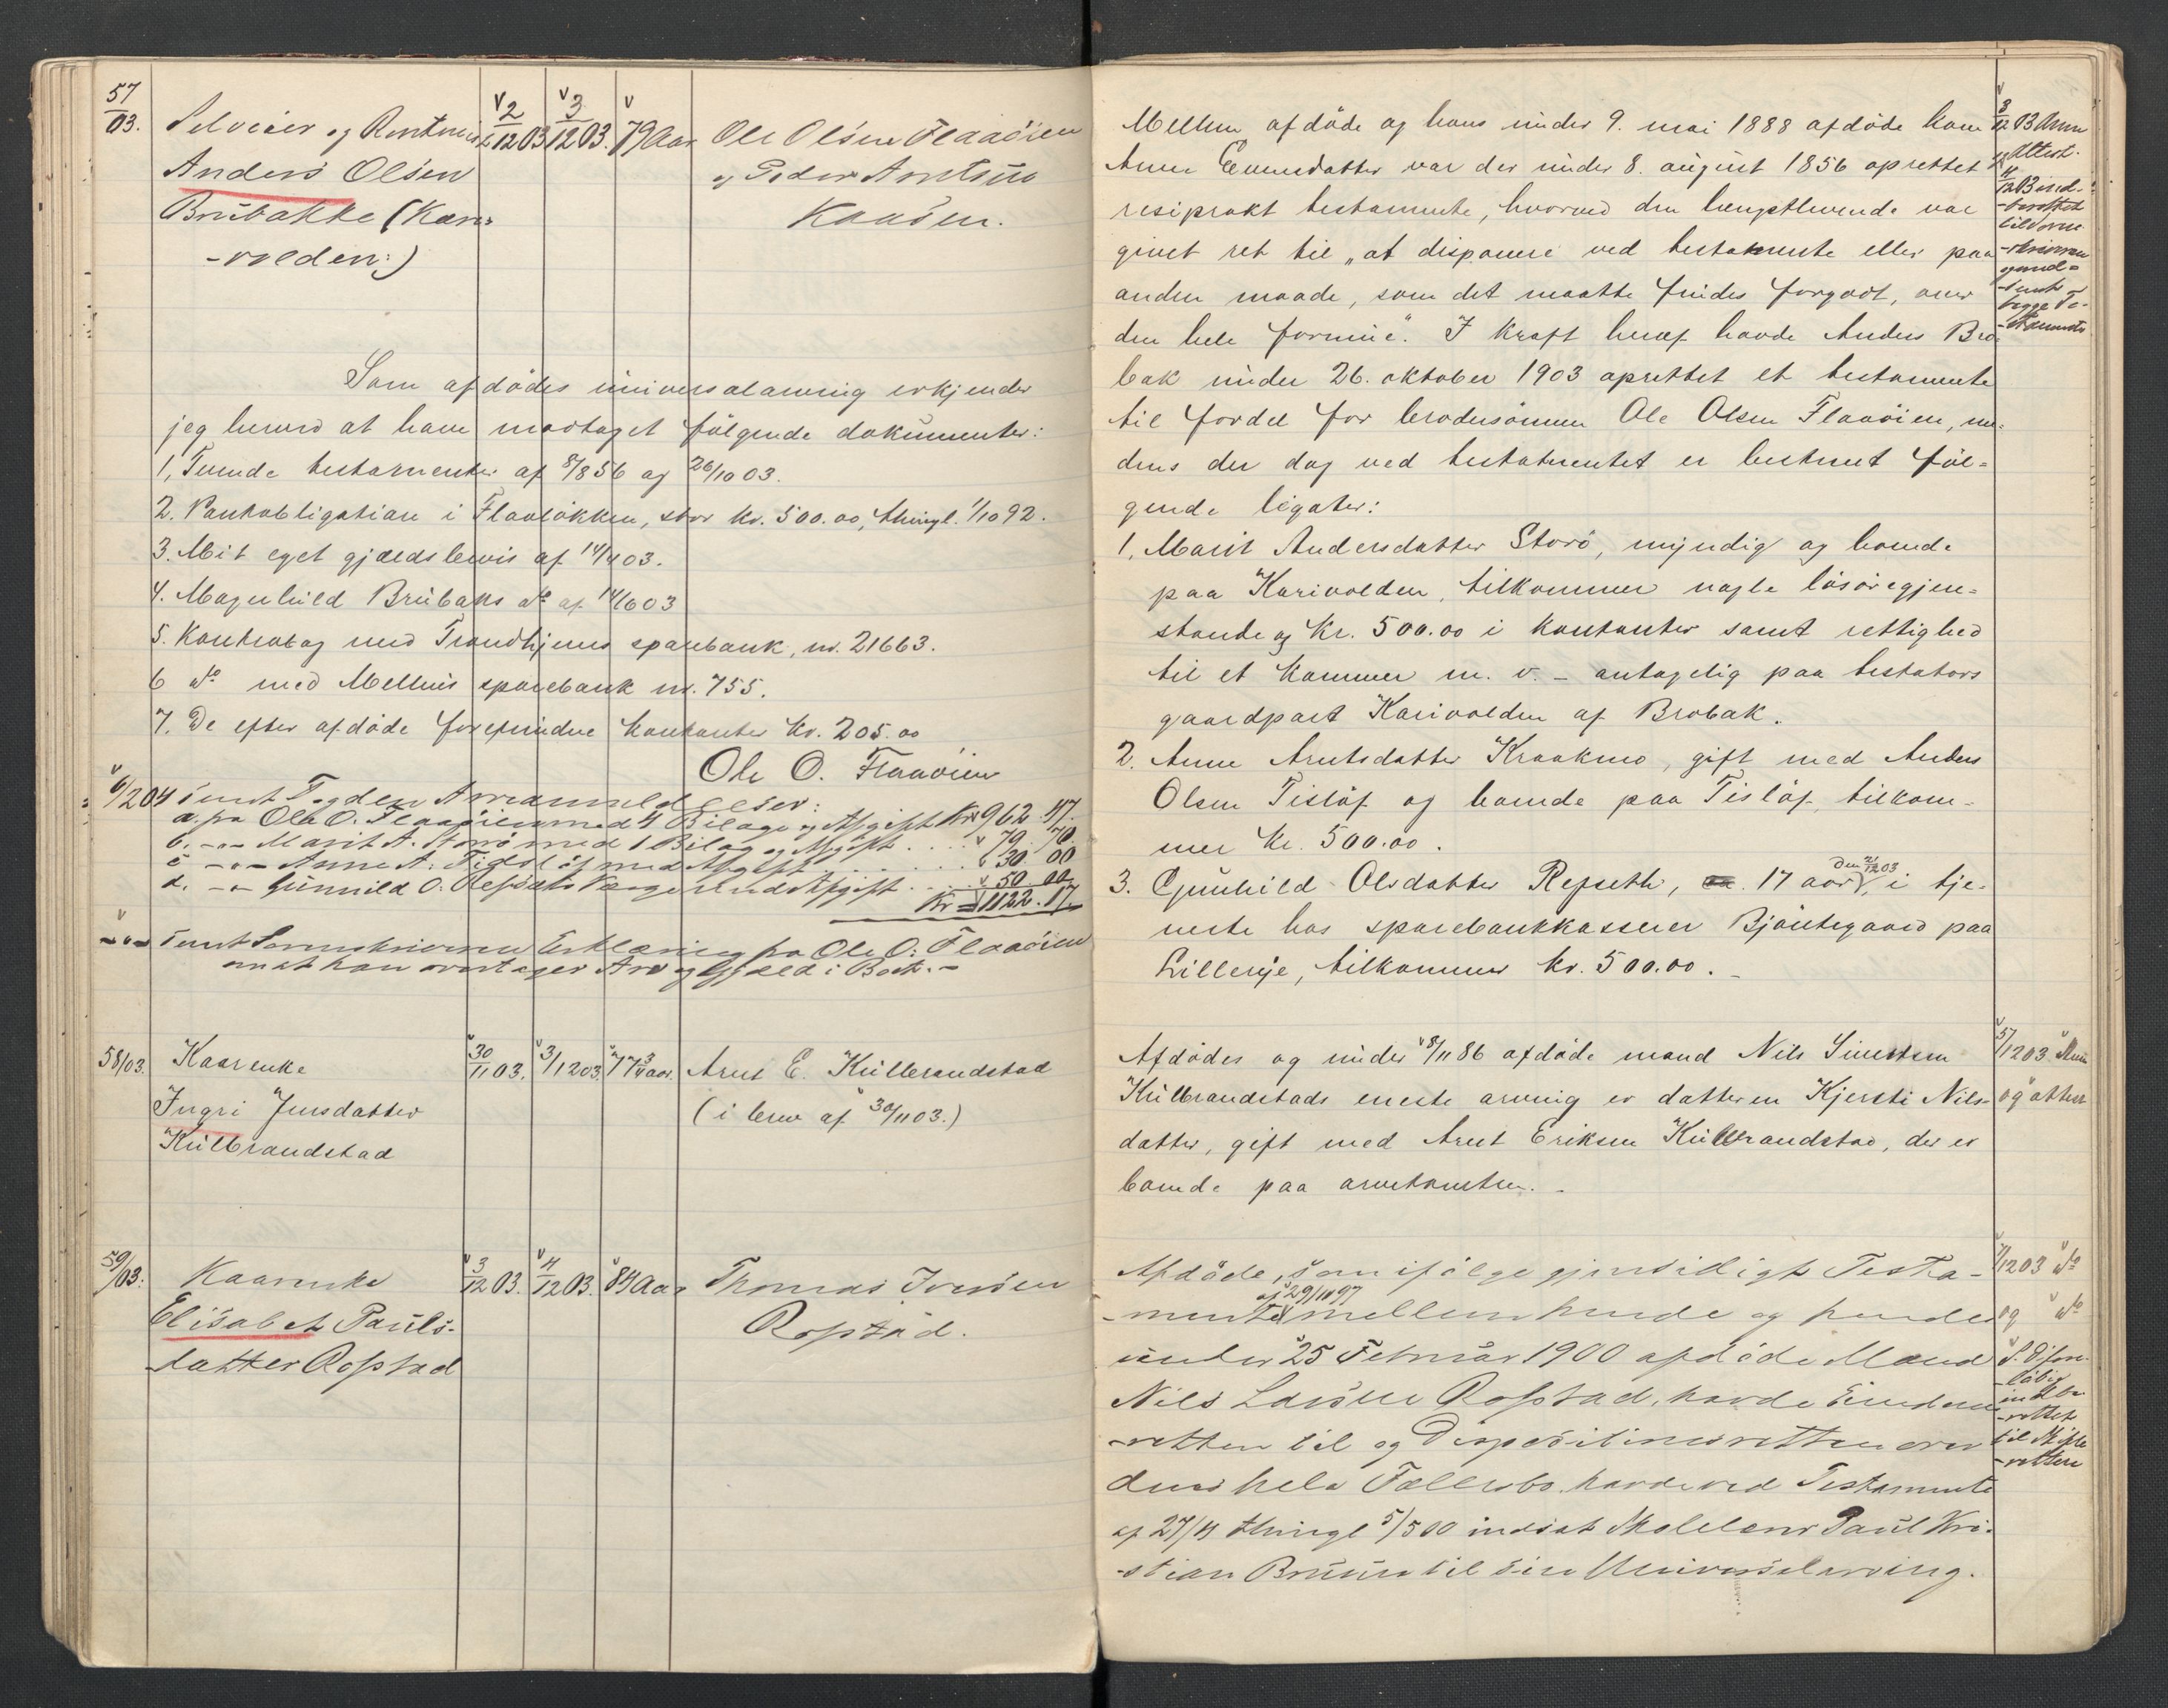 57/03.
Selveier og Rentenist
Anders Olsen
Brubakke (Kari-
-volden:)
2/12 03
3/12 03.
79 Aar
Ole Olsen Flaaöien
og Peder Arntsen
Kaasen.
Som afdödes universalarving erkjender
jeg herved at have modtaget fölgende dokumenter:
1, Tvende testamenter af 8/8 56 og 26/10 03.
2. Pantobligation i Flaalökken, stor kr. 500.00, thingl. 1/10 92.
3. Mit eget gjældsbevis af 14/4 03.
4. Magnhild Brubaks do af 14/6 03
5. Kontrabog med Trondhjems sparebank, nr. 21663.
6 do med Melhus sparebank nr. 755.
7. De efter afdöde forefundne kontanter kr. 205.00
Ole O. Flaaöien
6/2 04 sendt Fogden Arveanmeldelser:
a. fra Ole O. Flaaöien med 4 Bilage og Afgift Kr 962.47.
b. -"- Marit A. Storö med 1 Bilag og Afgift .... 79.70.
c -"- Anne A. Tislöf med Afgift ....... 30.00
d. -"- Gunnild O. Refsets Værge med Afgift ..... 50.00
Kr = 1122.17.
-"- sendt Sorenskriveren Erklæring fra Ole O. Flaaöien
om at han overtager Arv og Gjæld i Boet. -
58/03.
Kaarenke
Ingri Jensdatter
Kulbrandstad
30/11 03.
3/12 03.
77 3/4 aar.
Arnt E. Kulbrandstad
(i brev af 30/11 03.)
59/03.
Kaarenke
Elisabet Pauls-
datter Rofstad
3/12 03.
4/12 03.
84 Aar
Thomas Iversen
Rofstad.
Mellem afdöde og hans under 9. mai 1888 afdöde kone
Anne Evensdatter var der under 8. august 1856 oprettet
resiprokt testamente, hvorved den længstlevende var
givet ret til „at disponere ved testamente eller paa
anden maade, som det maatte findes forgodt, over
den hele formue". I kraft heraf havde Anders Bro-
bak under 26. oktober 1903 oprettet et testamente
til fordel for brodersönnen Ole Olsen Flaaöien, me-
dens der dog ved testamentet er bestemt föl-
gende legater:
1, Marit Andersdatter Storö, myndig og boende
paa Karivolden, tilkommer nogle lösöregjen-
stande og kr. 500.00 i kontanter samt rettighed
til et kammer m. v. - antagelig paa testators
gaardpart Karivolden af Brobak.
2. Anne Arntsdatter Kraakmo, gift med Anders
Olsen Tislöf og boende paa Tislöf, tilkom-
mer kr. 500.00.
3. Gunhild Olsdatter Refseth, 17 aar den 21/12 03, i tje-
neste hos sparebankkasserer Bjöntegaard paa
Lillerye, tilkommer kr. 500.00. -
3/12 03 Anm
og Attest.
4/12 03 ind-
-berettet
til Soren-
-skriveren
og ind-
-sendt
begge Te-
-stamenter
Afdödes og under 8/11 86 afdöde mand Nils Simonsen
Kulbrandstads eneste arving er datteren Kjersti Nils-
datter, gift med Arnt Eriksen Kulbrandstad, der er
boende paa arvetomten. -
5/12 03 Anm
og attest
Afdöde, som ifölge gjensidigt Testa-
-mente af 29/10 97 mellem hende og hendes
under 25 Februar 1900 afdöde Mand
Nils Larsen Rofstad, havde Eiendoms-
-retten til og Dispositionsretten over
deres hele Fællesbo, havde ved Testamente
af 27/4 thingl 5/5 00 indsat Skolelærer Paul Kri-
-stian Bruun til sin Universalarving.
4/12 03 do
og do
S. D. fore-
-löbig
indbe-
-rettet
til Skifte
-retten